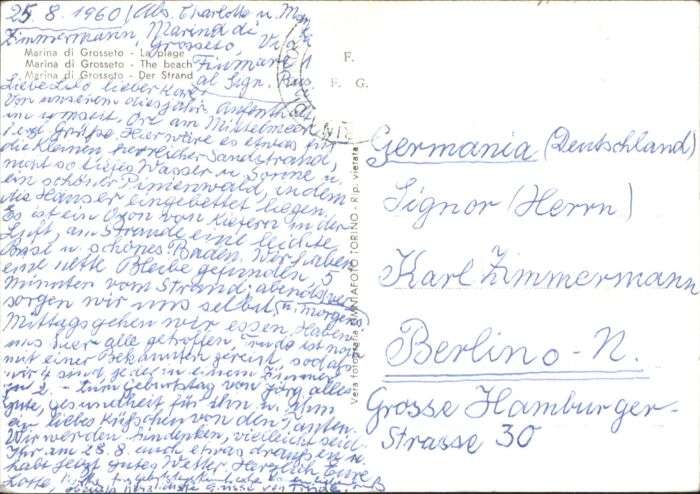 25.8.1960 / Abs. Charlotte u. M
Zimmermann, Marina di
Grosseto, Via
Marina di Grosseto - La plage
Marina di Grosseto - The beach
Marina di Grosseto - Der Strand
Fiumara 1
al Sign.
F.
F. G.
Liebe Lilo lieber
Von unserem diesjähr. Aufenthalt
in Ort am Mittelmeer
Grüße. Hier wäre es etwas für
die Kleinen, herrlicher Sandstrand,
warmes Wasser u. Sonne u.
ein schöner Pinienwald, in dem
die Häuser eingebettet liegen.
Es ist ein Ozon von Kiefern in der
Luft, am Strande eine leichte
Brise u. schönes Baden. Wir haben
eine nette Bleibe gefunden 5
Minuten vom Strand, abends ver-
sorgen wir uns selbst, (u. morgens)
Mittags gehen wir essen. Haben
uns hier alle getroffen, ist noch
mit einer Bekannten gereist, sodaß
wir 4 sind, jeder in einem Zimmer
zu 2. - Zum Geburtstag von Jörg alles
Gute, Gesundheit für Ihn u. Ihm
ein liebes Küßchen von den Tanten.
Wir werden an denken, vielleicht seid
Ihr am 28.8. auch etwas draußen u.
habt jetzt gutes Wetter. Herzlich Eure
Lotte,
Vera fotografia OMNIAFOTO TORINO - Rip. vietata
Germania (Deutschland)
Signor (Herrn)
Karl Zimmermann
Berlino - N.
Grosse Hamburger-
Strasse 30